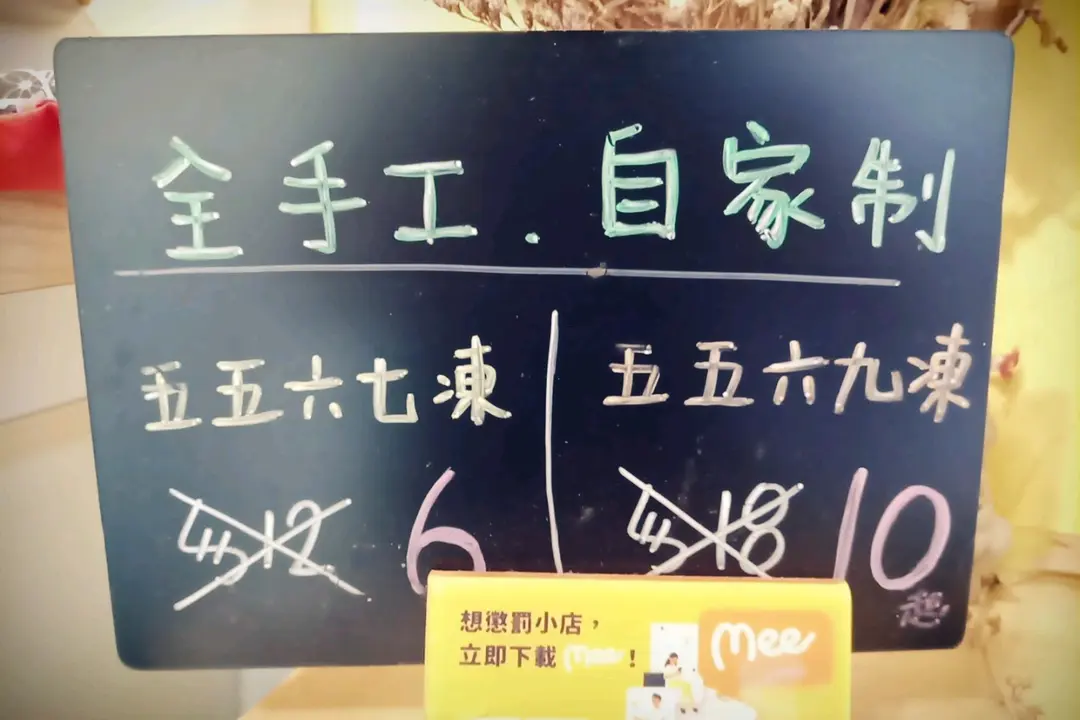 全手工.自家制
五五六七凍
五五六九凍
$12 6
$18 10
起
想懲罰小店，
立即下載 Mee！
Mee